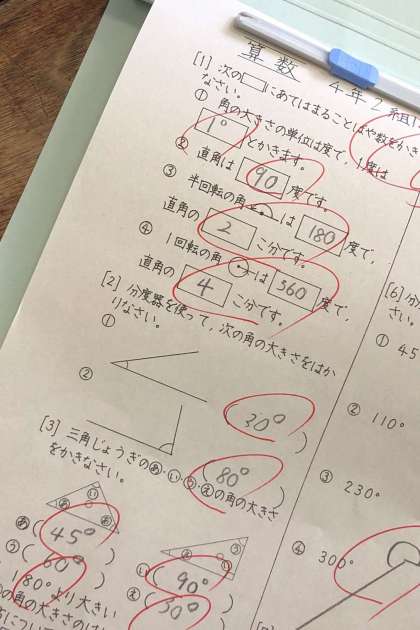 算数
4年2組
[1] 次の□にあてはまることばや数をかき
なさい。
① 角の大きさの単位は度で、1度は
1° とかきます。
② 直角は 90 度です。
③ 半回転の角 は 180 度で、
直角の 2 こ分です。
④ 1回転の角 は 360 度で、
直角の 4 こ分です。
[2] 分度器を使って、次の角の大きさをはか
りなさい。
①
(30°)
②
(80°)
[3] 三角じょうぎのあ・い・う・えの角の大きさ
をかきなさい。
あ い
う え
あ(45°)
い(90°)
う(60°)
え(30°)
180°より大きい
の角の大きさのは
[6] 分
さい。
① 45
② 110°
③ 230°
④ 300°